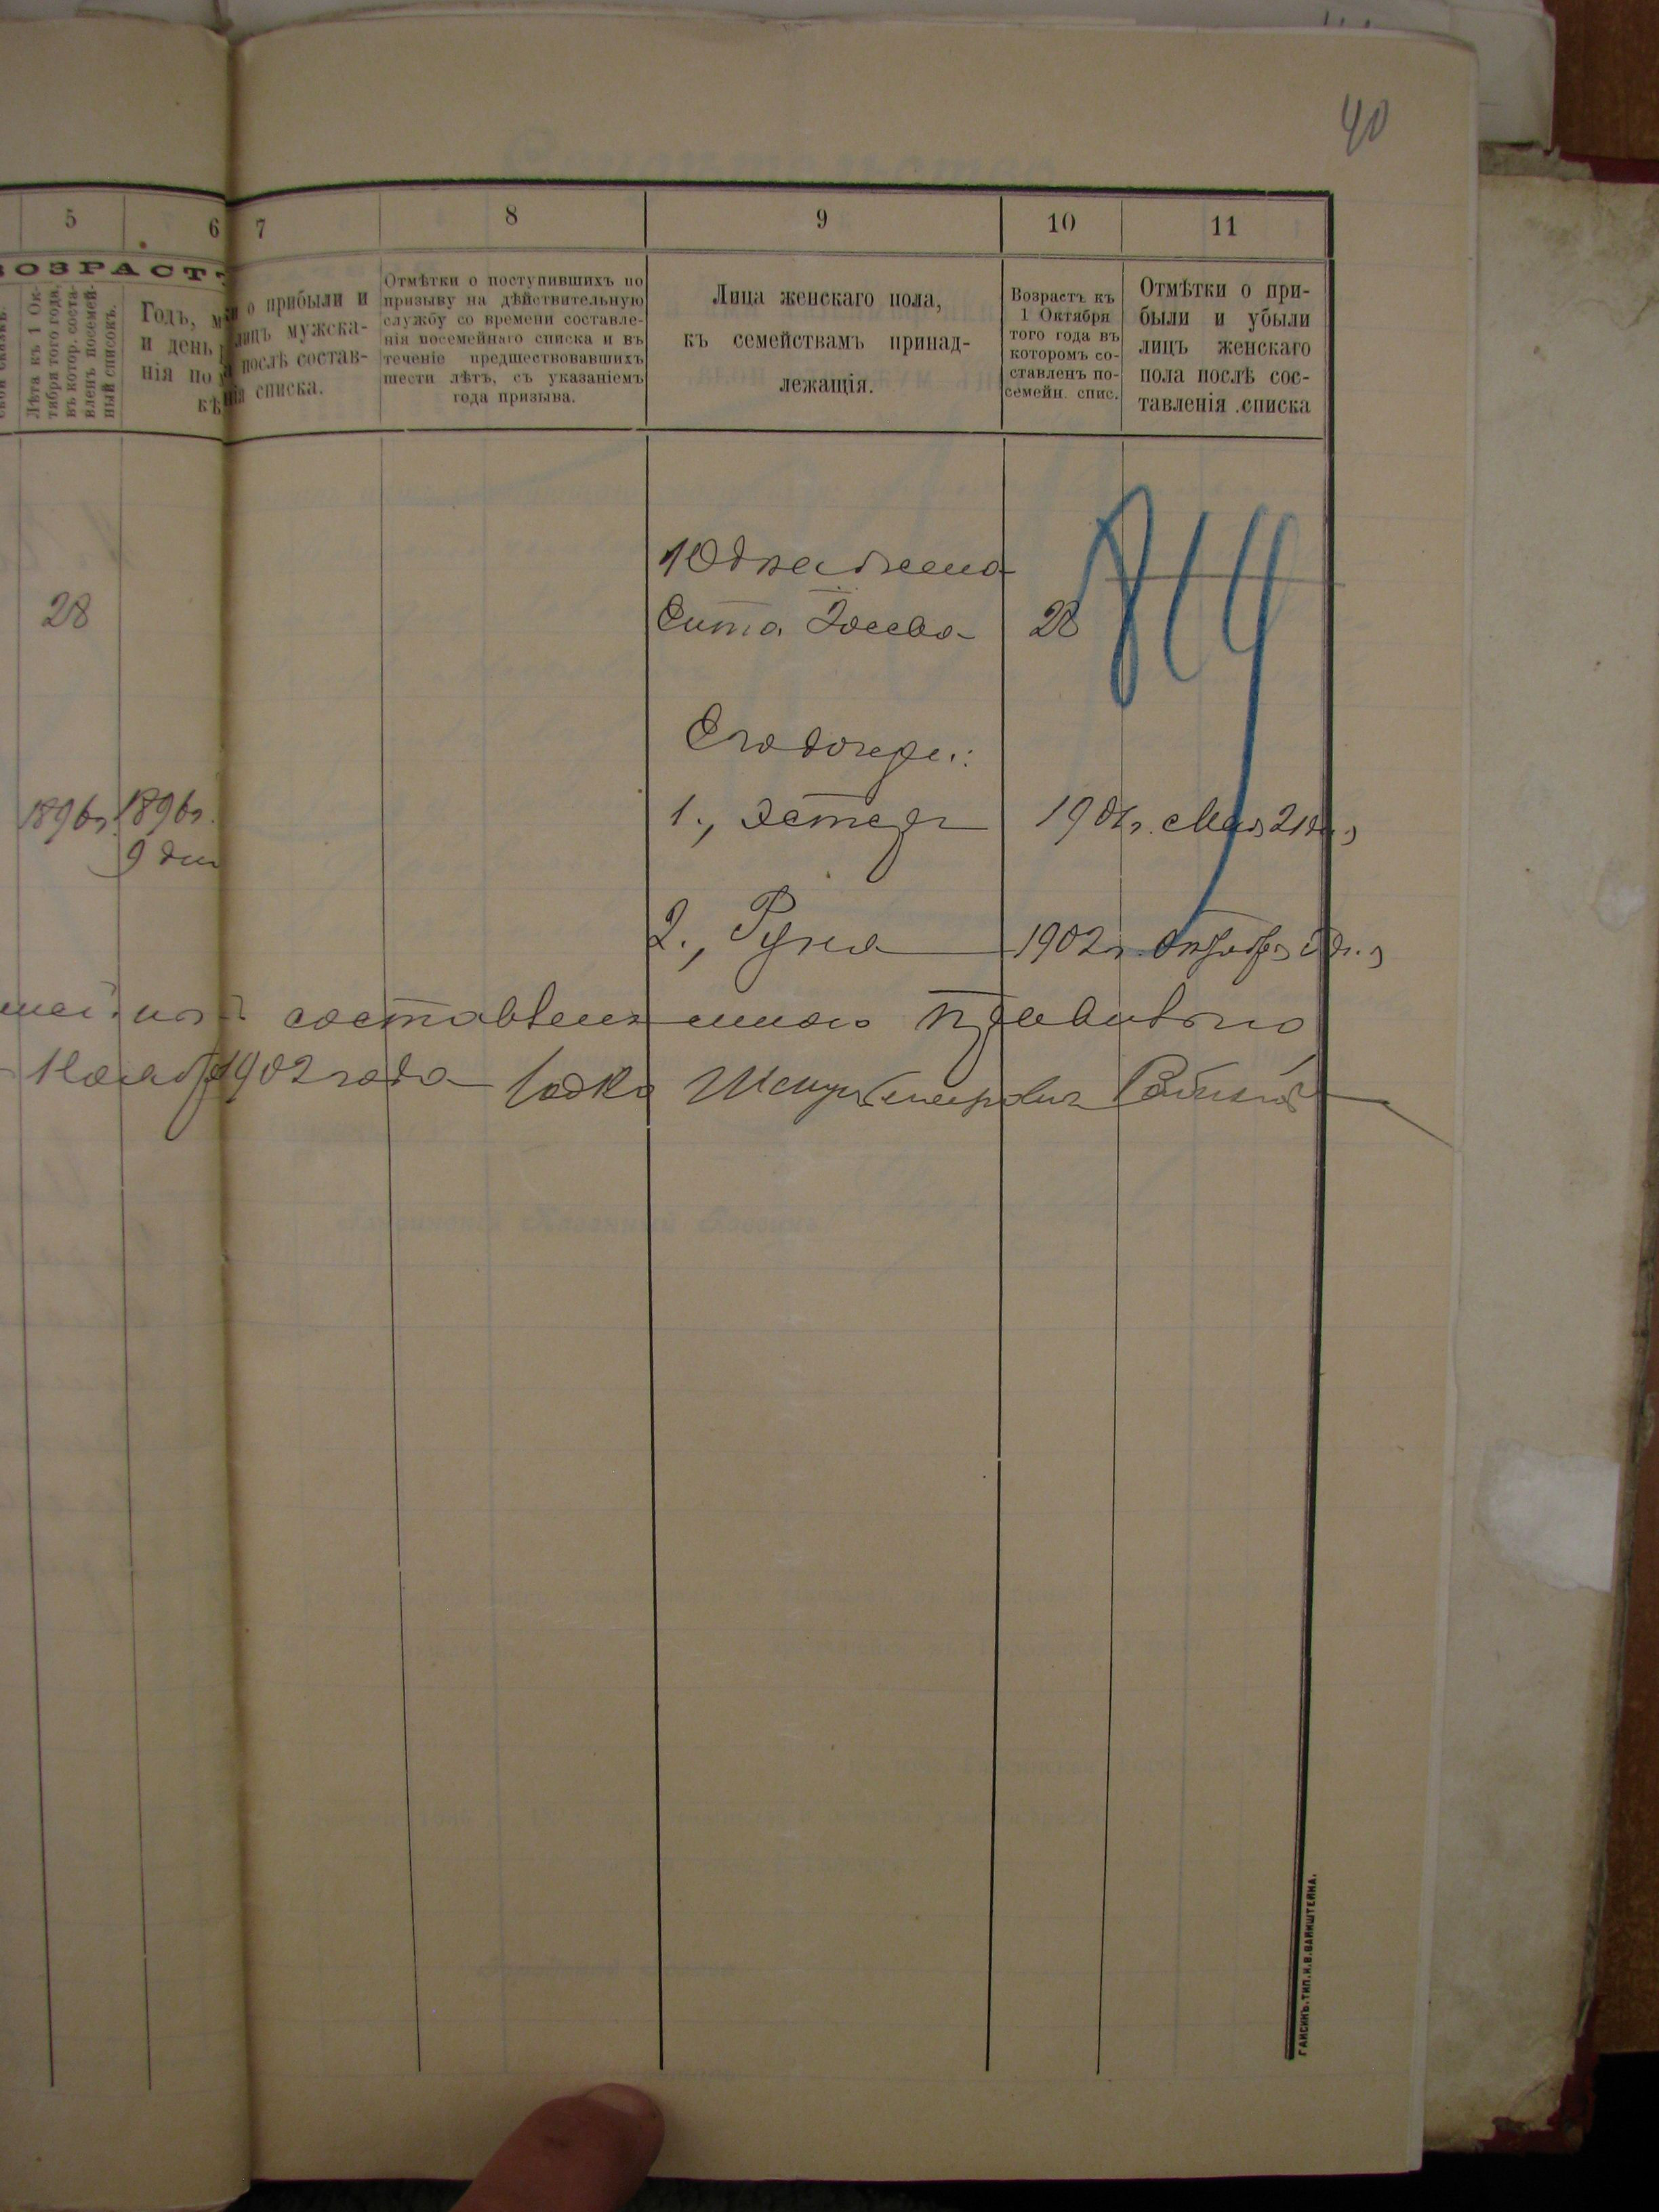 40
5 6 7 8 9 10 11
ВОЗРАСТЪ
Лѣта къ 1 Ок-
тября того года,
въ котор. соста-
вленъ посемей-
ный списокъ.
Годъ,
и день
нія по
о прибыли и
лицъ мужска-
послѣ состав-
нія списка.
Отмѣтки о поступившихъ по
призыву на дѣйствительную
службу со времени составле-
нія посемейнаго списка и въ
теченіе предшествовавшихъ
шести лѣтъ, съ указаніемъ
года призыва.
Лица женскаго пола,
къ семействамъ принад-
лежащія.
Возрастъ къ
1 Октября
того года въ
которомъ со-
ставленъ по-
семейн. спис.
Отмѣтки о при-
были и убыли
лицъ женскаго
пола послѣ сос-
тавленія списка
Юдка жена
28
Сита 28
Его дочери:
1896г. 1896г.
9 дня
1., Эстеръ 1901г. Мая 21 дня
2., Рухля 1902г. Октября
составленъ мною правильно
Ноября 1902 года
ГАЙСИНЪ. ТИП. И. В. ВАЙНШТЕЙНА.